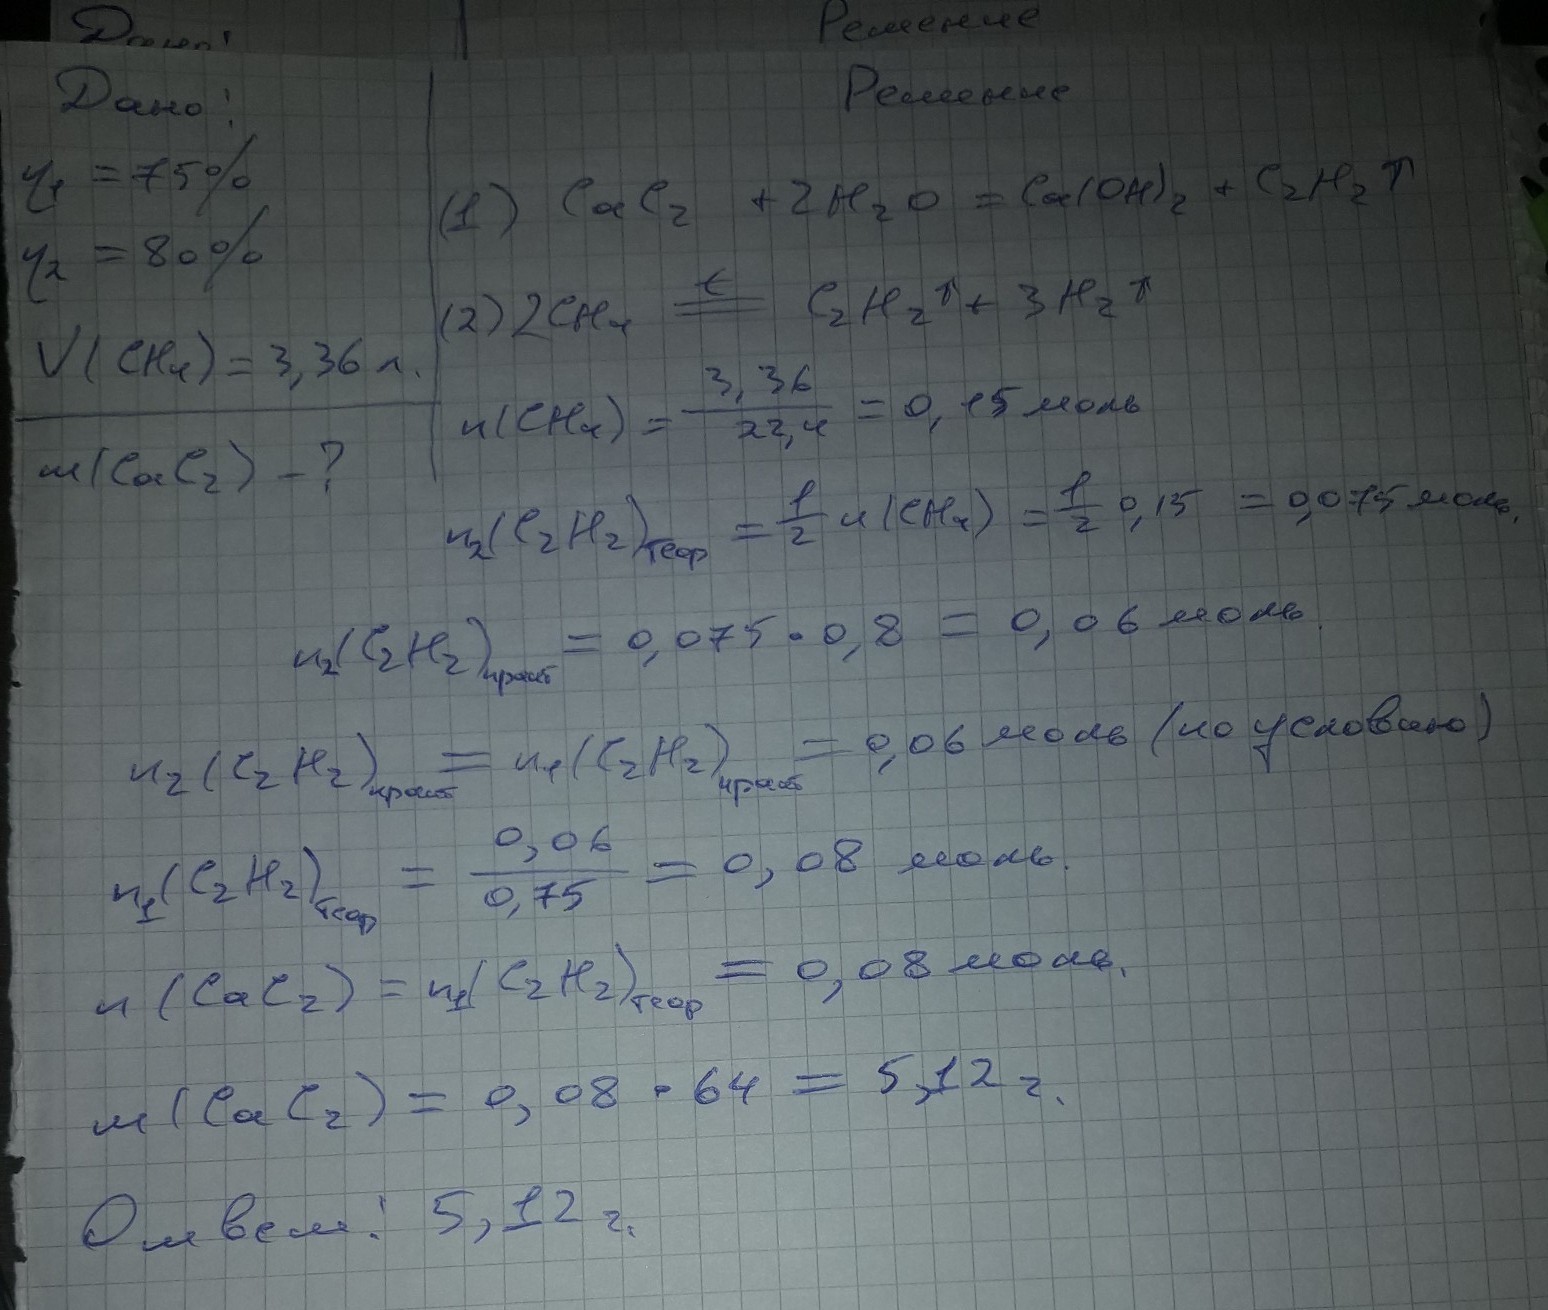 Дано: Решение
Дано: Решение
η₁ = 75%
η₂ = 80%
V(CH₄) = 3,36 л.
m(CaC₂) - ?
(1) CaC₂ + 2H₂O = Ca(OH)₂ + C₂H₂↑
(2) 2CH₄ =t= C₂H₂↑ + 3H₂↑
n(CH₄) = 3,36/22,4 = 0,15 моль
n₂(C₂H₂)теор = 1/2 n(CH₄) = 1/2 0,15 = 0,075 моль.
n₂(C₂H₂)практ = 0,075 · 0,8 = 0,06 моль.
n₂(C₂H₂)практ = n₁(C₂H₂)практ = 0,06 моль (по условию)
n₁(C₂H₂)теор = 0,06/0,75 = 0,08 моль.
n(CaC₂) = n₁(C₂H₂)теор = 0,08 моль.
m(CaC₂) = 0,08 · 64 = 5,12 г.
Ответ: 5,12 г.